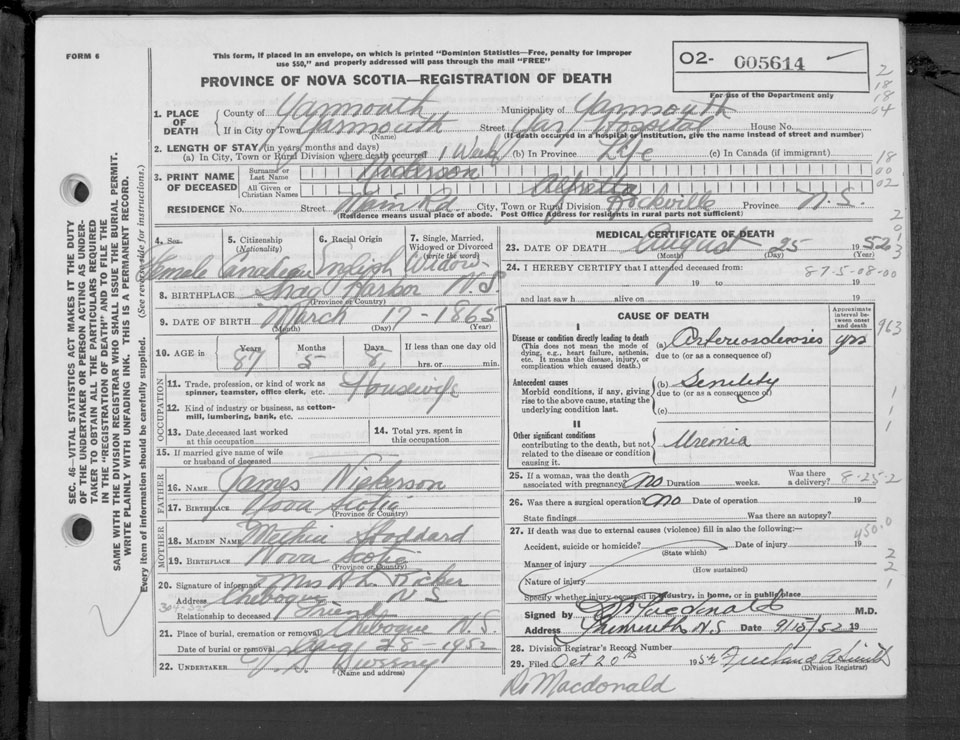 FORM 6
This form, if placed in an envelope, on which is printed "Dominion Statistics—Free, penalty for improper
use $50," and properly addressed will pass through the mail "FREE"
PROVINCE OF NOVA SCOTIA—REGISTRATION OF DEATH
02- 005614
For use of the Department only
2
18
18
04
1. PLACE OF DEATH County of Yarmouth Municipality of Yarmouth
If in City or Town Yarmouth (Name) Street Yar. Hospital House No.
(If death occurred in a hospital or institution, give the name instead of street and number)
2. LENGTH OF STAY (in years, months and days)
(a) In City, Town or Rural Division where death occurred 1 Week (b) In Province Life (c) In Canada (if immigrant)
18
00
02
3. PRINT NAME OF DECEASED Surname or Last Name Anderson
All Given or Christian Names Alfretta
RESIDENCE No. Street Main Rd. City, Town or Rural Division Rockville Province N.S.
(Residence means usual place of abode. Post Office Address for residents in rural parts not sufficient)
4. Sex Female
5. Citizenship (Nationality) Canadian
6. Racial Origin English
7. Single, Married, Widowed or Divorced (write the word) Widow
8. BIRTHPLACE Shag Harbor N.S.
(Province or Country)
9. DATE OF BIRTH March 17 - 1865
(Month) (Day) (Year)
10. AGE in Years 87 Months 5 Days 8 If less than one day old hrs. or min.
OCCUPATION
11. Trade, profession, or kind of work as spinner, teamster, office clerk, etc. Housewife
12. Kind of industry or business, as cotton-mill, lumbering, bank, etc.
13. Date deceased last worked at this occupation
14. Total yrs. spent in this occupation
15. If married give name of wife or husband of deceased
FATHER
16. NAME James Nickerson
17. BIRTHPLACE Nova Scotia
(Province or Country)
MOTHER
18. MAIDEN NAME Stoddard
19. BIRTHPLACE Nova Scotia
(Province or Country)
20. Signature of informant Mrs H L Ricker
Address Chebogue N S
Relationship to deceased Friend
21. Place of burial, cremation or removal Chebogue N.S.
Date of burial or removal Aug 28 - 1952
22. UNDERTAKER V. S. Sweeny
(Name and address)
MEDICAL CERTIFICATE OF DEATH
23. DATE OF DEATH August 25 1952
(Month) (Day)
24. I HEREBY CERTIFY that I attended deceased from:
87-5-08-00
19 to 19
and last saw h alive on 19
CAUSE OF DEATH
Approximate interval between onset and death
963
I
Disease or condition directly leading to death
(This does not mean the mode of dying, e.g., heart failure, asthenia, etc. It means the disease, injury, or complication which caused death.)
(a) Arteriosclerosis yrs
due to (or as a consequence of)
Antecedent causes
Morbid conditions, if any, giving rise to the above cause, stating the underlying condition last.
(b) Senility
due to (or as a consequence of)
(c)
II
Other significant conditions
contributing to the death, but not related to the disease or condition causing it.
Uremia
25. If a woman, was the death associated with pregnancy? No Duration weeks. Was there a delivery?
8-25-2
26. Was there a surgical operation? No Date of operation 19
State findings Was there an autopsy?
27. If death was due to external causes (violence) fill in also the following:—
450.0
Accident, suicide or homicide? Date of injury 19
(State which)
Manner of injury
(How sustained)
Nature of injury
Specify whether injury occurred in industry, in home, or in public place
Signed by Macdonald M.D.
Address Yarmouth N.S. Date 9/15/52 19
28. Division Registrar's Record Number
29. Filed Oct 20th 1952
(Division Registrar)
Dr Macdonald
SEC. 46—VITAL STATISTICS ACT MAKES IT THE DUTY
OF THE UNDERTAKER OR PERSON ACTING AS UNDER-
TAKER TO OBTAIN ALL THE PARTICULARS REQUIRED
IN THE "REGISTRATION OF DEATH" AND TO FILE THE
SAME WITH THE DIVISION REGISTRAR WHO SHALL ISSUE THE BURIAL PERMIT.
WRITE PLAINLY WITH UNFADING INK. THIS IS A PERMANENT RECORD.
Every item of information should be carefully supplied. (See reverse side for instructions.)